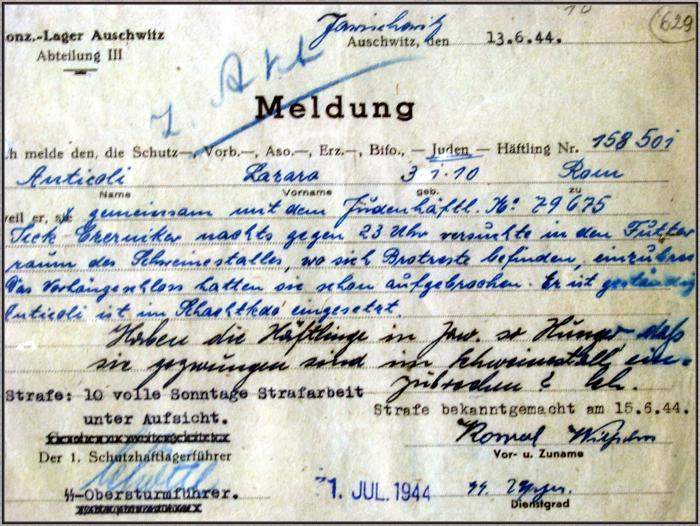 629
onz.-Lager Auschwitz
Jawischowitz
Abteilung III
Auschwitz, den 13.6.44.
z. Akt
Meldung
ch melde den, die Schutz—, Vorb.—, Aso.—, Erz.—, Bifo., — Juden — Häftling Nr. 158501
Anticoli Lazaro 3.1.10 Rom
Name Vorname geb. zu
weil er, sie gemeinsam mit dem Judenhäftl. No 79675
Icek Czerniker nachts gegen 23 Uhr versuchte in den Futter
raum des Schweinestalles, wo sich Brotreste befinden, einzubre
Das Vorhängeschloss hatten sie schon aufgebrochen. Er ist geständig
Anticoli ist im Schachtkdo eingesetzt.
Haben die Häftlinge in Jaw. so Hunger daß
sie gezwungen sind im Schweinestall ein-
zubrechen?
Strafe: 10 volle Sonntage Strafarbeit
unter Aufsicht.
Strafe bekanntgemacht am 15.6.44.
Der 1. Schutzhaftlagerführer
Vor- u. Zuname
SS-Obersturmführer.
1. JUL. 1944
Dienstgrad